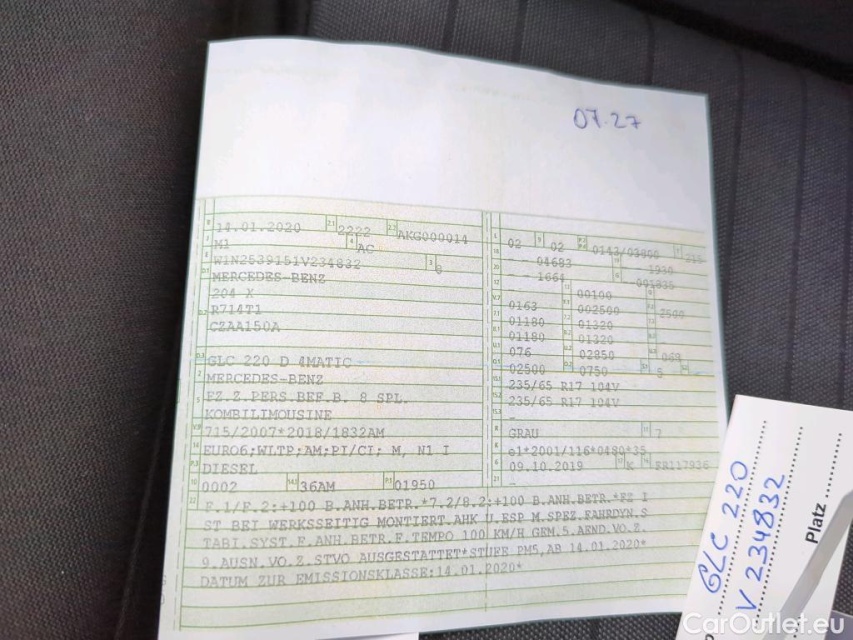 07.27
14.01.2020 2222 AKG000014
M1 AC
W1N2539151V234832 8
MERCEDES-BENZ
204 X
R714T1
CZAA150A
GLC 220 D 4MATIC
MERCEDES-BENZ
FZ.Z.PERS.BEF.B. 8 SPL.
KOMBILIMOUSINE
715/2007*2018/1832AM
EURO6;WLTP;AM;PI/CI; M, N1 I
DIESEL
0002 36AM 01950
02 02 0143/03800
04683 1930
1664 001835
00100
0163 002500 2500
01180 01320
01180 01320
076 02850 069
02500 0750 5
235/65 R17 104V
235/65 R17 104V
GRAU 7
e1*2001/116*0480*35
09.10.2019 K FR117936
F.1/F.2:+100 B.ANH.BETR.*7.2/8.2:+100 B.ANH.BETR.*FZ I
ST BEI WERKSSEITIG MONTIERT.AHK U.ESP M.SPEZ.FAHRDYN.S
TABI.SYST.F.ANH.BETR.F.TEMPO 100 KM/H GEM.5.AEND.VO.Z.
9.AUSN.VO.Z.STVO AUSGESTATTET*STUFE PM5,AB 14.01.2020*
DATUM ZUR EMISSIONSKLASSE:14.01.2020*
GLC 220
V 234832
Platz
CarOutlet.eu